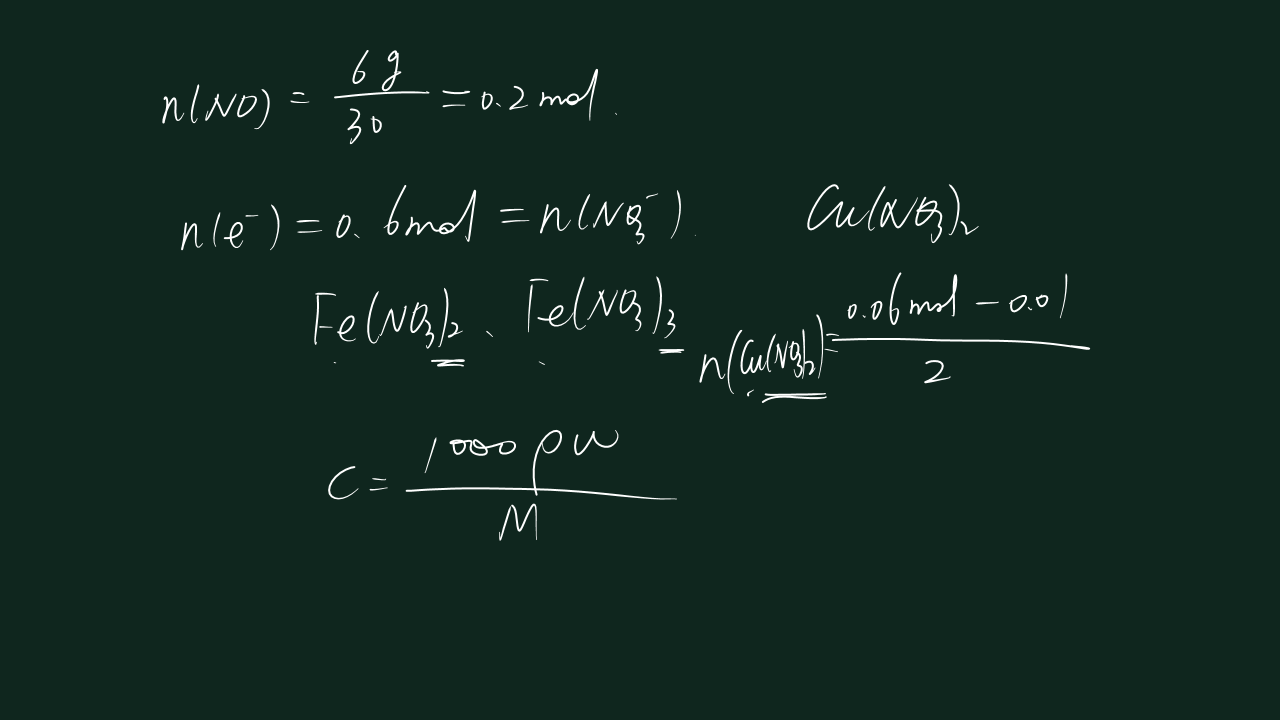 n(NO) = 6g/30 = 0.2 mol.
n(e⁻) = 0.6mol = n(NO₃⁻). Cu(NO₃)₂
Fe(NO₃)₂、Fe(NO₃)₃
n(Cu(NO₃)₂) = (0.06mol - 0.01)/2
C = 1000ρw/M